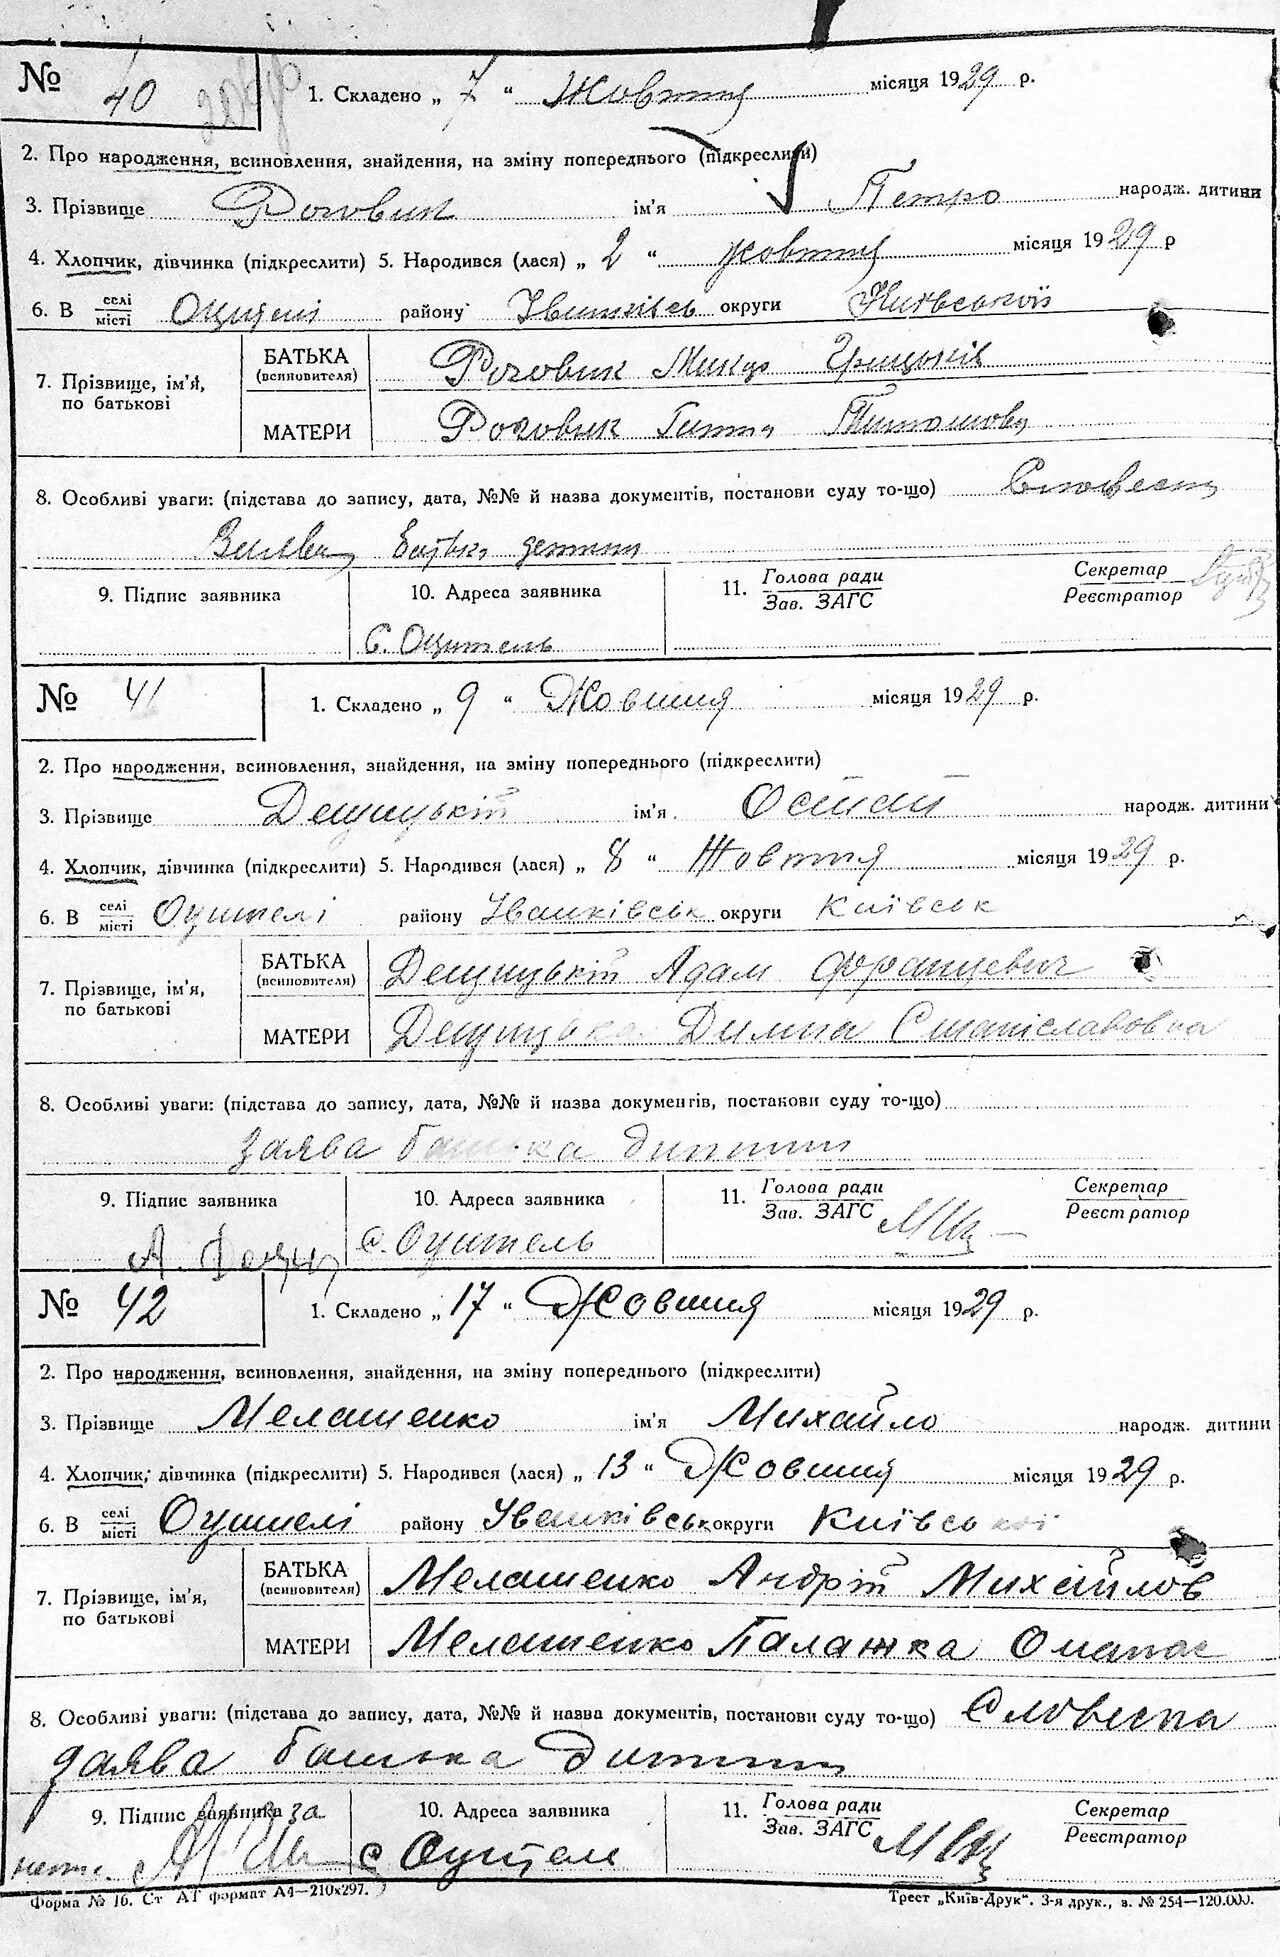 № 40 1. Складено „ 7 “ Жовтня місяця 1929 р.
2. Про народження, всиновлення, знайдення, на зміну попереднього (підкреслити)
3. Прізвище Роговик ім'я Петро народж. дитини
4. Хлопчик, дівчинка (підкреслити) 5. Народився (лася) „ 2 “ жовтня місяця 1929 р
6. В селі/місті Оцителі району Іванківськ округи Київської
7. Прізвище, ім'я, по батькові
БАТЬКА (всиновителя) Роговик Грицьків
МАТЕРИ Роговик Ганна
8. Особливі уваги: (підстава до запису, дата, №№ й назва документів, постанови суду то-що) Словесна
Заява батька дитини
9. Підпис заявника 10. Адреса заявника 11. Голова ради/Зав. ЗАГС Секретар/Реєстратор
С. Оцитель
№ 41 1. Складено „ 9 “ Жовтня місяця 1929 р.
2. Про народження, всиновлення, знайдення, на зміну попереднього (підкреслити)
3. Прізвище Дещицькій ім'я Остап народж. дитини
4. Хлопчик, дівчинка (підкреслити) 5. Народився (лася) „ 8 “ Жовтня місяця 1929 р.
6. В селі/місті Оцителі району Іванківськ округи Київськ
7. Прізвище, ім'я, по батькові
БАТЬКА (всиновителя) Дещицькій Адам Францевич
МАТЕРИ Дещицька Станіславовна
8. Особливі уваги: (підстава до запису, дата, №№ й назва документів, постанови суду то-що)
заява батька дитини
9. Підпис заявника 10. Адреса заявника 11. Голова ради/Зав. ЗАГС Секретар/Реєстратор
А. с. Оцитель
№ 42 1. Складено „ 17 “ Жовтня місяця 1929 р.
2. Про народження, всиновлення, знайдення, на зміну попереднього (підкреслити)
3. Прізвище Мелашенко ім'я Михайло народж. дитини
4. Хлопчик, дівчинка (підкреслити) 5. Народився (лася) „ 13 “ Жовтня місяця 1929 р.
6. В селі/місті Оцителі району Іванківськ округи Київської
7. Прізвище, ім'я, по батькові
БАТЬКА (всиновителя) Мелашенко Андрій Михайлов
МАТЕРИ Мелашенко Палажка Опанас
8. Особливі уваги: (підстава до запису, дата, №№ й назва документів, постанови суду то-що) Словесна
заява батька дитини
9. Підпис заявника 10. Адреса заявника 11. Голова ради/Зав. ЗАГС Секретар/Реєстратор
за
с Оцителі
Форма № 16. Ст АТ формат А4—210х297. Трест „Київ-Друк“. 3-я друк., з. № 254—120.000.